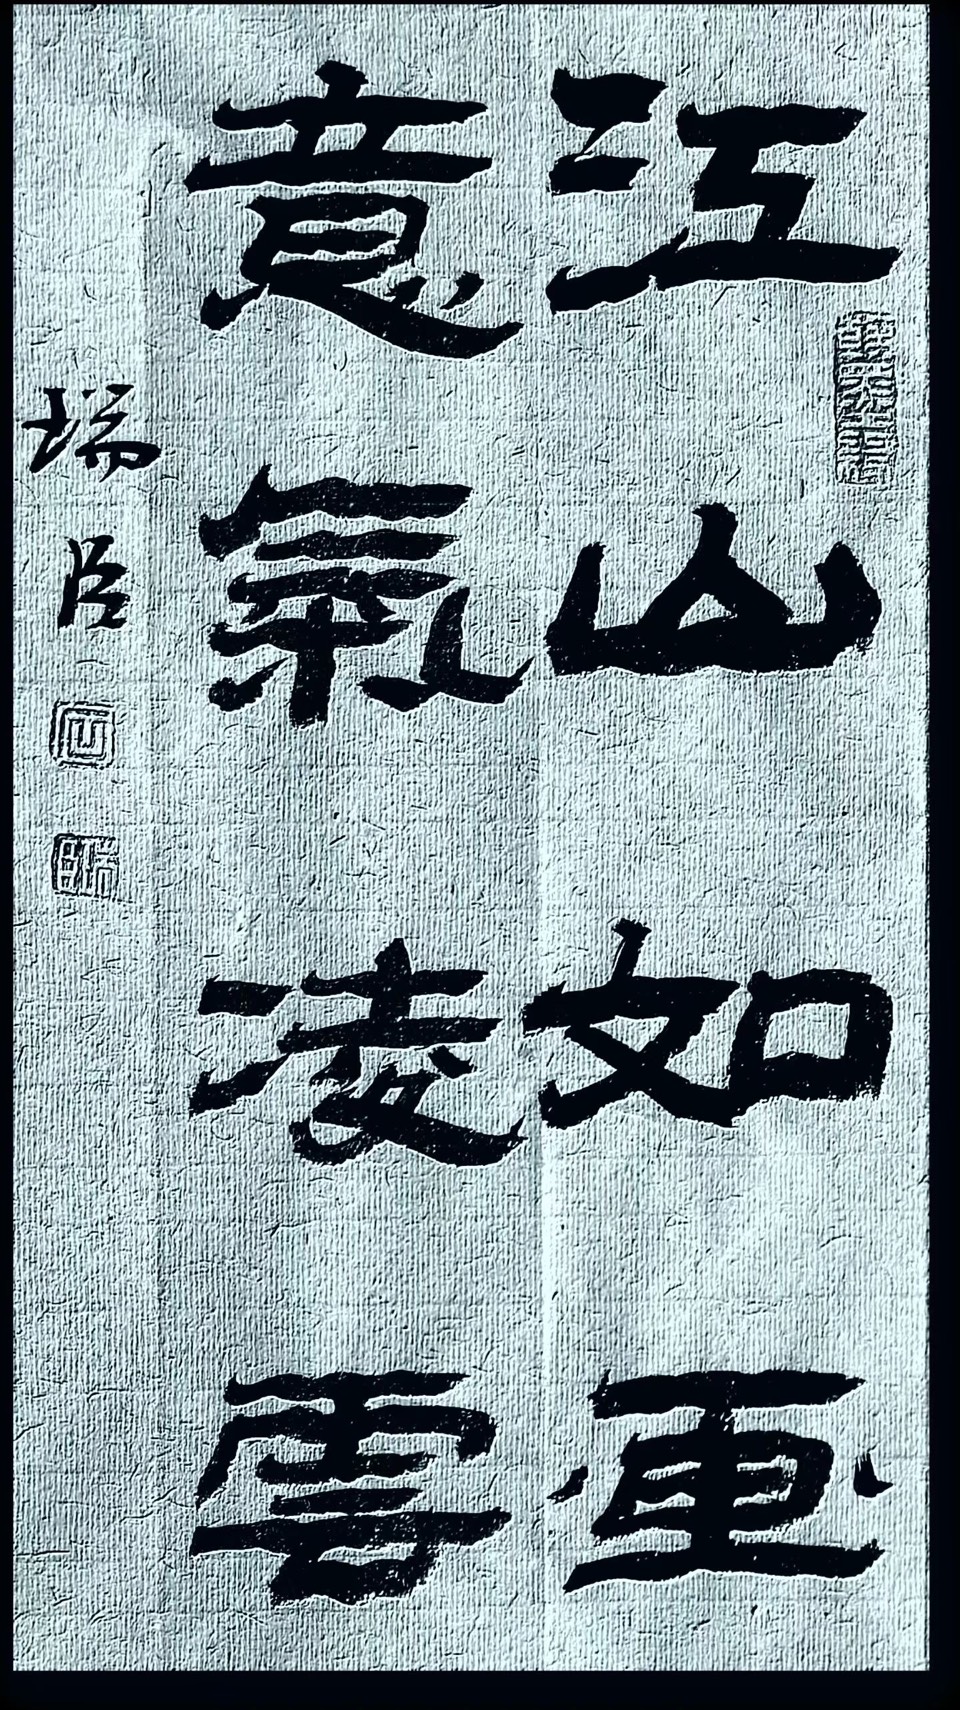 江山如画
意氣凌雲
瑞臣